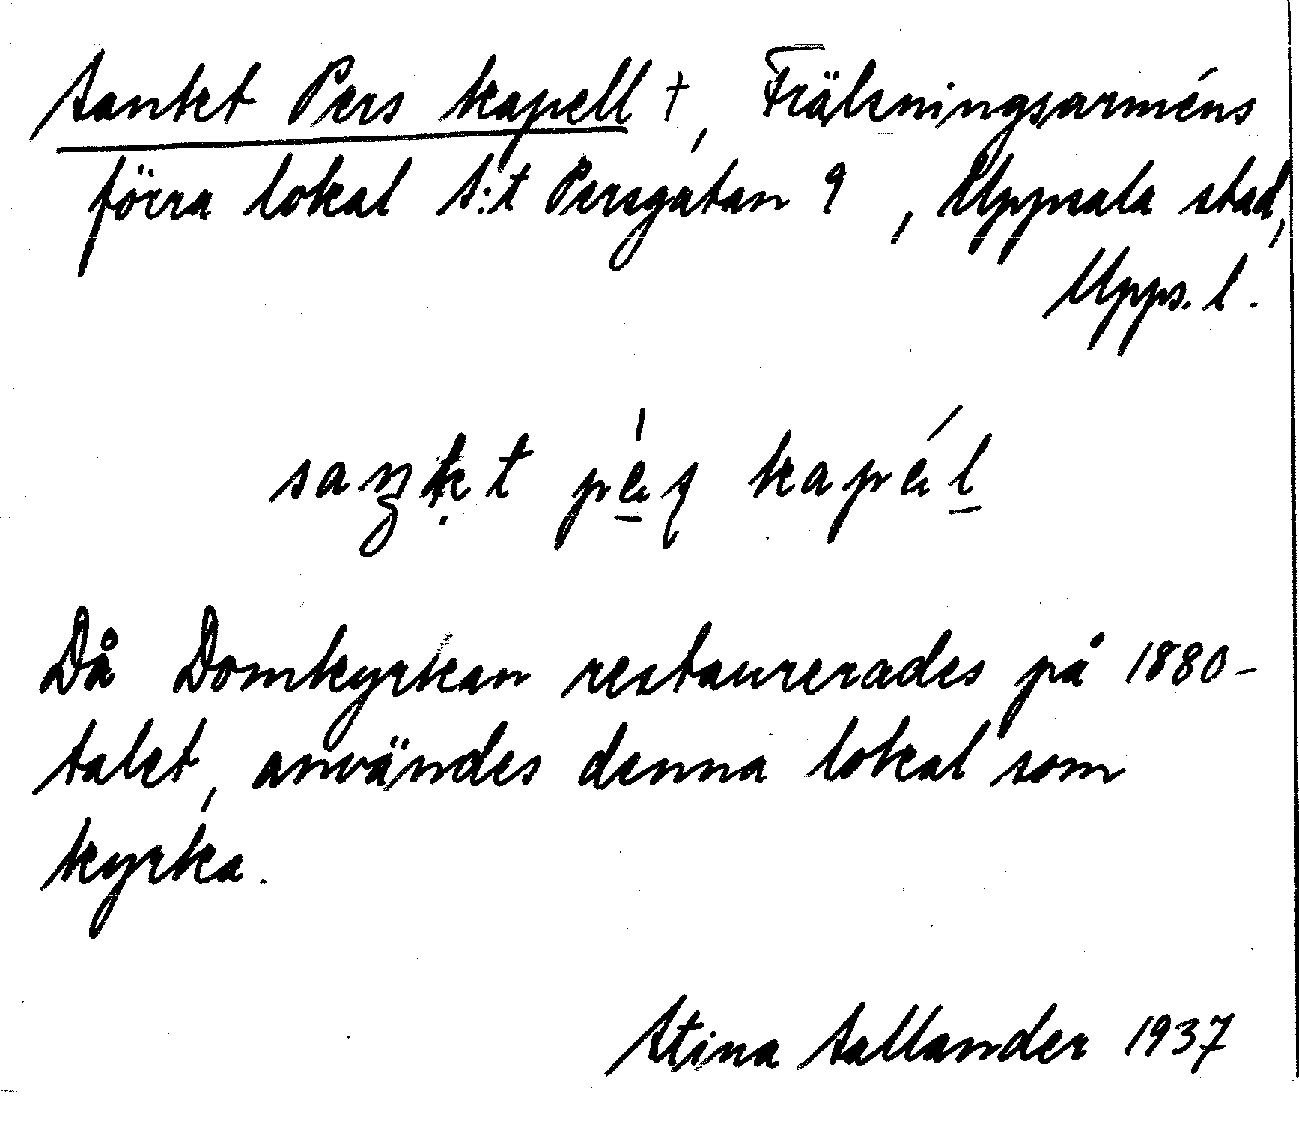 Sankt Pers kapell †, Frälsningsarméns
förra lokal S:t Persgatan 9, Uppsala stad,
Upps. l.
kapél
Då Domkyrkan restaurerades på 1880-
talet, användes denna lokal som
kyrka.
Stina Sallander 1937